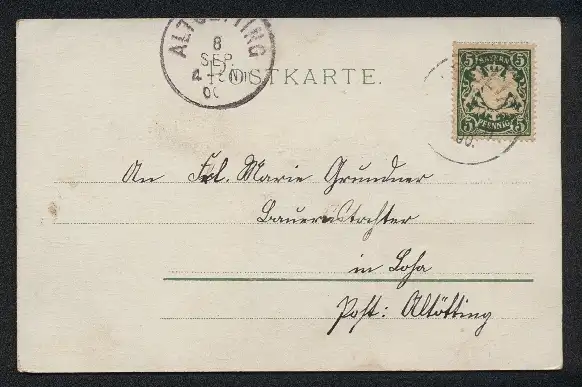 ALTOETTING
8
SEP.
00
POSTKARTE.
BAYERN
5 5
5 PFENNIG 5
00.
An Frl. Marie Grundner
Bauernstochter
in Loha
Post: Altötting